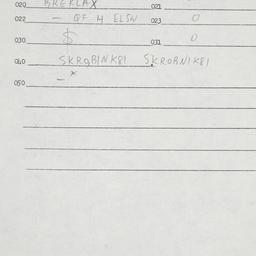 020 BREKLAX 021
022 - QF H ELSN 023 0
030 $ 031 0
040 SKRABINK81 SKRORNIK81
050 - x